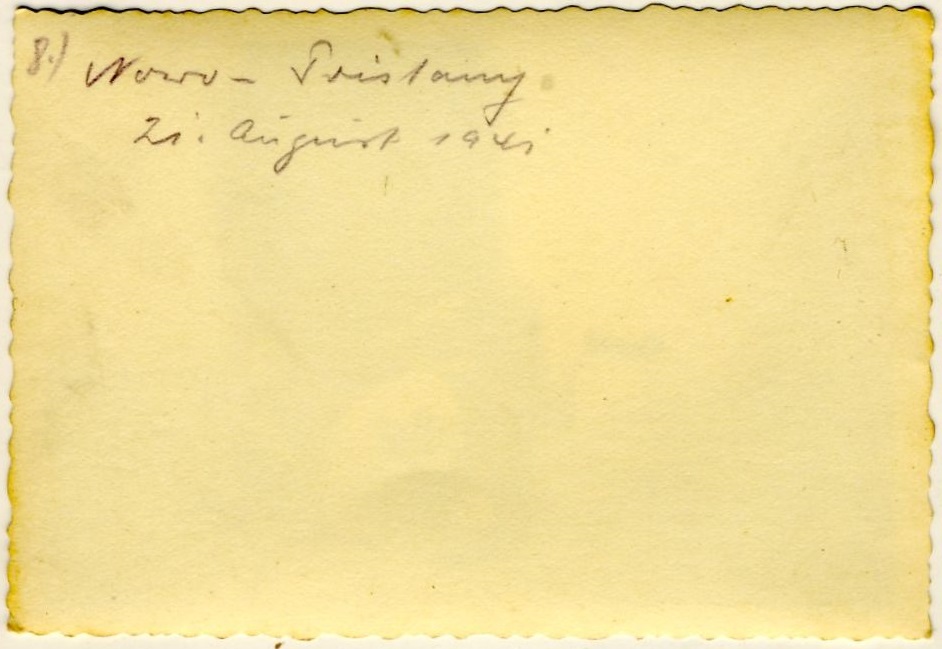 8.) Nowo- Pristany
21. August 1941